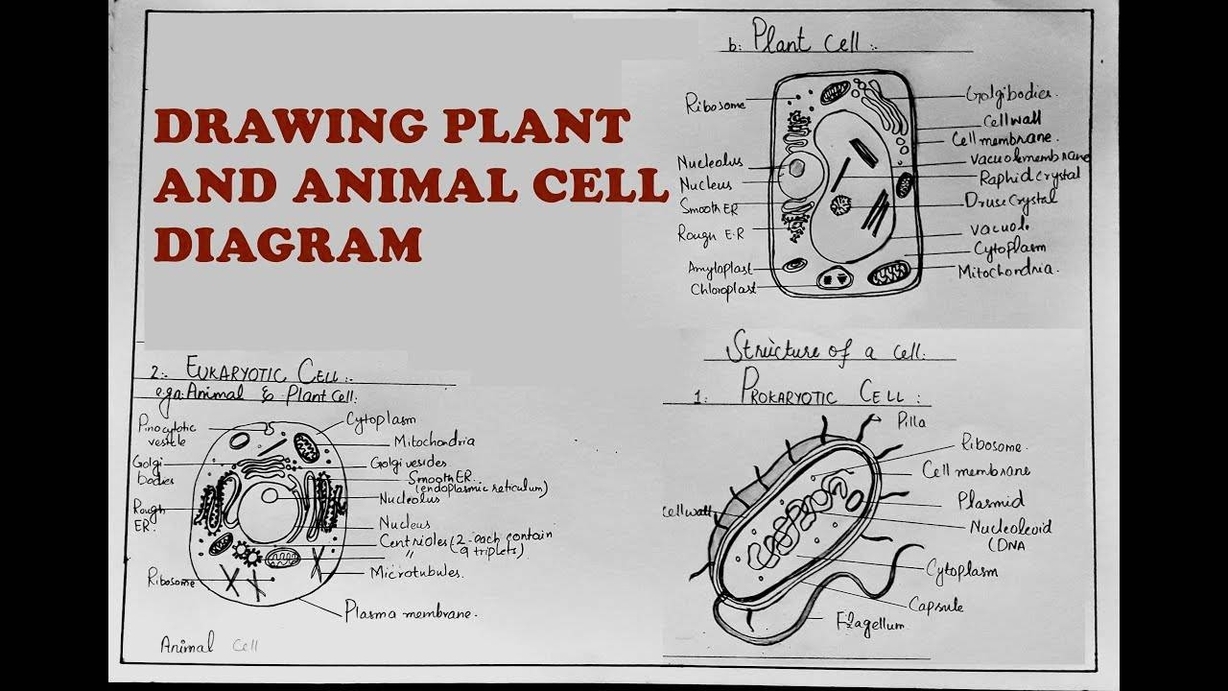 DRAWING PLANT
AND ANIMAL CELL
DIAGRAM
b: Plant Cell :-
Ribosome
Nucleolus
Nucleus
Smooth ER
Rough E.R
Amyloplast
Chloroplast
Golgibodies.
Cell wall
Cell membrane.
vacuole membrane
Raphid crystal
Druse Crystal
vacuole
Cytoplasm
Mitochondria.
2:- EUKARYOTIC CELL:-
e.g. Animal & Plant Cell:
Pinocytotic
vesicle
Golgi
bodies
Rough
ER.
Ribosome
Cytoplasm
Mitochondria
Golgi vesides
Smooth ER.
(endoplasmic reticulum)
Nucleolus
Nucleus
Centrioles (2-each contain
9 triplets).
"
Microtubules.
Plasma membrane.
Animal Cell
Structure of a cell:
1: PROKARYOTIC CELL :
Pilla
Ribosome.
Cell membrane
Plasmid
Nucleoloid
(DNA
Cytoplasm
Capsule
Flagellum
cell wall